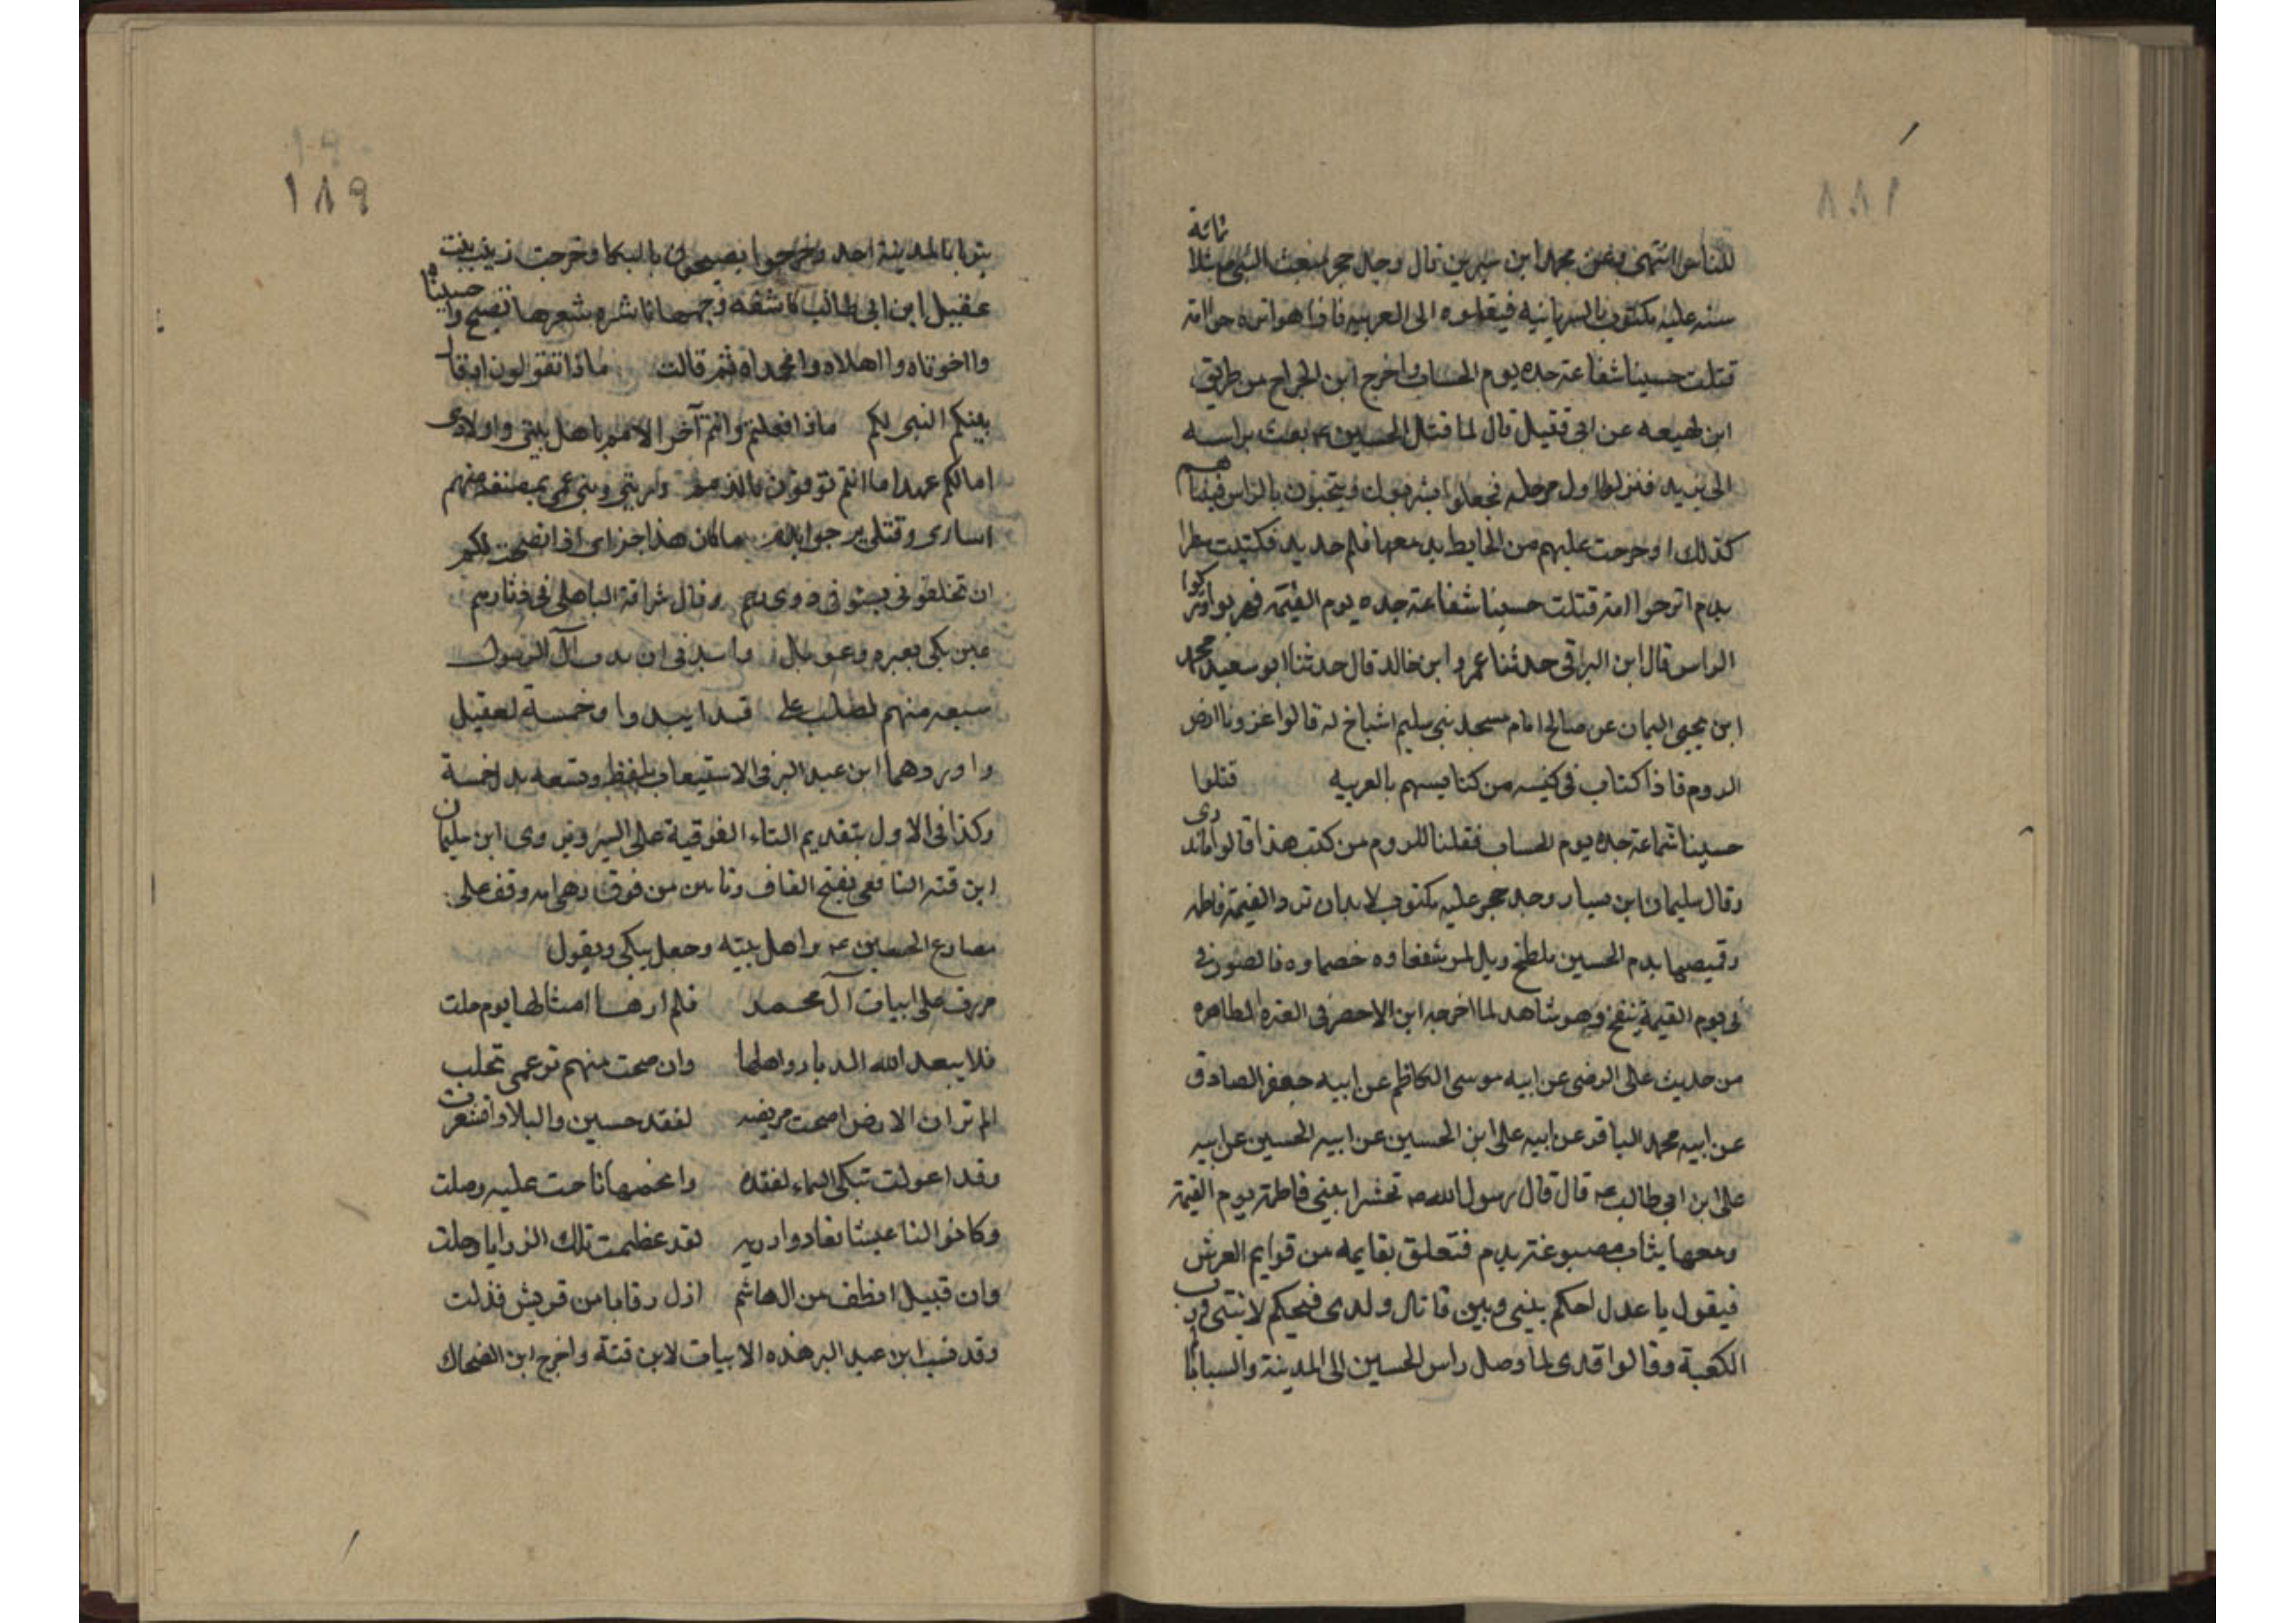 ١٨٨
للناس انتهى وعن محمد ابن سيرين قال وجد حجر لمبعث النبي بثلاثمائة
سنه عليه مكتوب بالسريانيه فنقلوه الى العربيه فاذا هو اترجوا امة
قتلت حسينا شفاعة جده يوم الحساب واخرج ابن الجراح من طريق
ابن لهيعه عن ابى قنبل قال لما قتل الحسين ع بعث براسه
الى يزيد فنزلوا اول مرحله فجعلوا يشربون ويتحيون بالراس فبينما هم
كذلك اذ خرجت عليهم من الحايط يد معها قلم حديد فكتبت سطرا
بدم اترجوا امة قتلت حسينا شفاعة جده يوم القيمة فهربوا وتركوا
الراس قال ابن البراقى حدثنا عمرو ابن خالد قال حدثنا ابو سعيد محمد
ابن يحيى اليمان عن صالح امام مسجد بنى سليم اشياخ له قالوا غزونا ارض
الروم فاذا كتاب فى كنيسه من كنايسهم بالعربيه قتلوا
حسينا شفاعة جده يوم الحساب فقلنا للروم من كتب هذا قالوا ما ندرى
وقال سليمان ابن يسار وجد حجر عليه مكتوب لا بد ان ترد القيمة فاطمه
وقميصها بدم الحسين ملطخ ويل لمن شفعاوه خصماوه فالصور
فى يوم القيمة ينفخ وهو شاهد لما اخرجه ابن الاحضر فى العترة الطاهره
من حديث على الرضى عن ابيه موسى الكاظم عن ابيه جعفر الصادق
عن ابيه محمد الباقر عن ابيه على ابن الحسين عن ابيه الحسين عن ابيه
على ابن ابى طالب ع قال قال رسول الله ص تحشر ابنتى فاطمة يوم القيمة
ومعها ثياب مصبوغة بدم فتعلق بقايمه من قوايم العرش
فيقول يا عدل احكم بينى وبين قاتل ولدى فيحكم لابنتى ورب
الكعبة وقالوا قدى لما وصل راس الحسين الى المدينة والسبايا لم
١٨٩
بالمدينة احد وخرجوا يصيحون بالبكا وخرجت زينب بنت
عقيل ابن ابى طالب كاشفه وجهها ناشره شعرها تصيح وا حسيناه
وا اخوتاه وا اهلاه وا محمداه ثم قالت ماذا تقولون ان قال
بينكم النبى لكم ماذا فعلتم وانتم آخر الامم باهل بيتى واولادى
اما لكم عهد اما انتم توفون بالذمم ذريتى وبنى عمى بمضيعة منهم
اسارى وقتلى ضرجوا بدم ما كان هذا جزاى اذ انصحت لكم
ان تخلفونى بسو فى ذوى رحم وقال سراقة الباهلى فى
عين بكى بعبره وعويل واندبى ان ندبت آل الرسول
سبعه منهم لصلب على قد ابيدوا وخمسة لعقيل
واوردهما ابن عبد البر فى الاستيعاب بلفظ وتسعه بدل خمسة
وكذا فى الاول بتقديم التاء الفوقية على السين وروى ابن سليمان
ابن قته التابعى بفتح القاف وتاءين من فوق وقف على
مصارع الحسين ع واهل بيته وجعل يبكى ويقول
مررت على ابيات آل محمد فلم ارها امثالها يوم حلت
فلا يبعد الله الديار واهلها وان صحت منهم تخلت
الم تر ان الارض اصحت مريضه لفقد حسين والبلاد اقشعرت
وقد اعولت تبكى السماء لفقده وانجمها ناحت عليه وصلت
وكانوا لنا فعادوا رزيه لقد عظمت تلك الرزايا وجلت
وان قتيل الطف من ال هاشم اذل رقابا من قريش فذلت
وقد نسب ابن عبد البر هذه الابيات لابن قتة واخرج ابن الضحاك